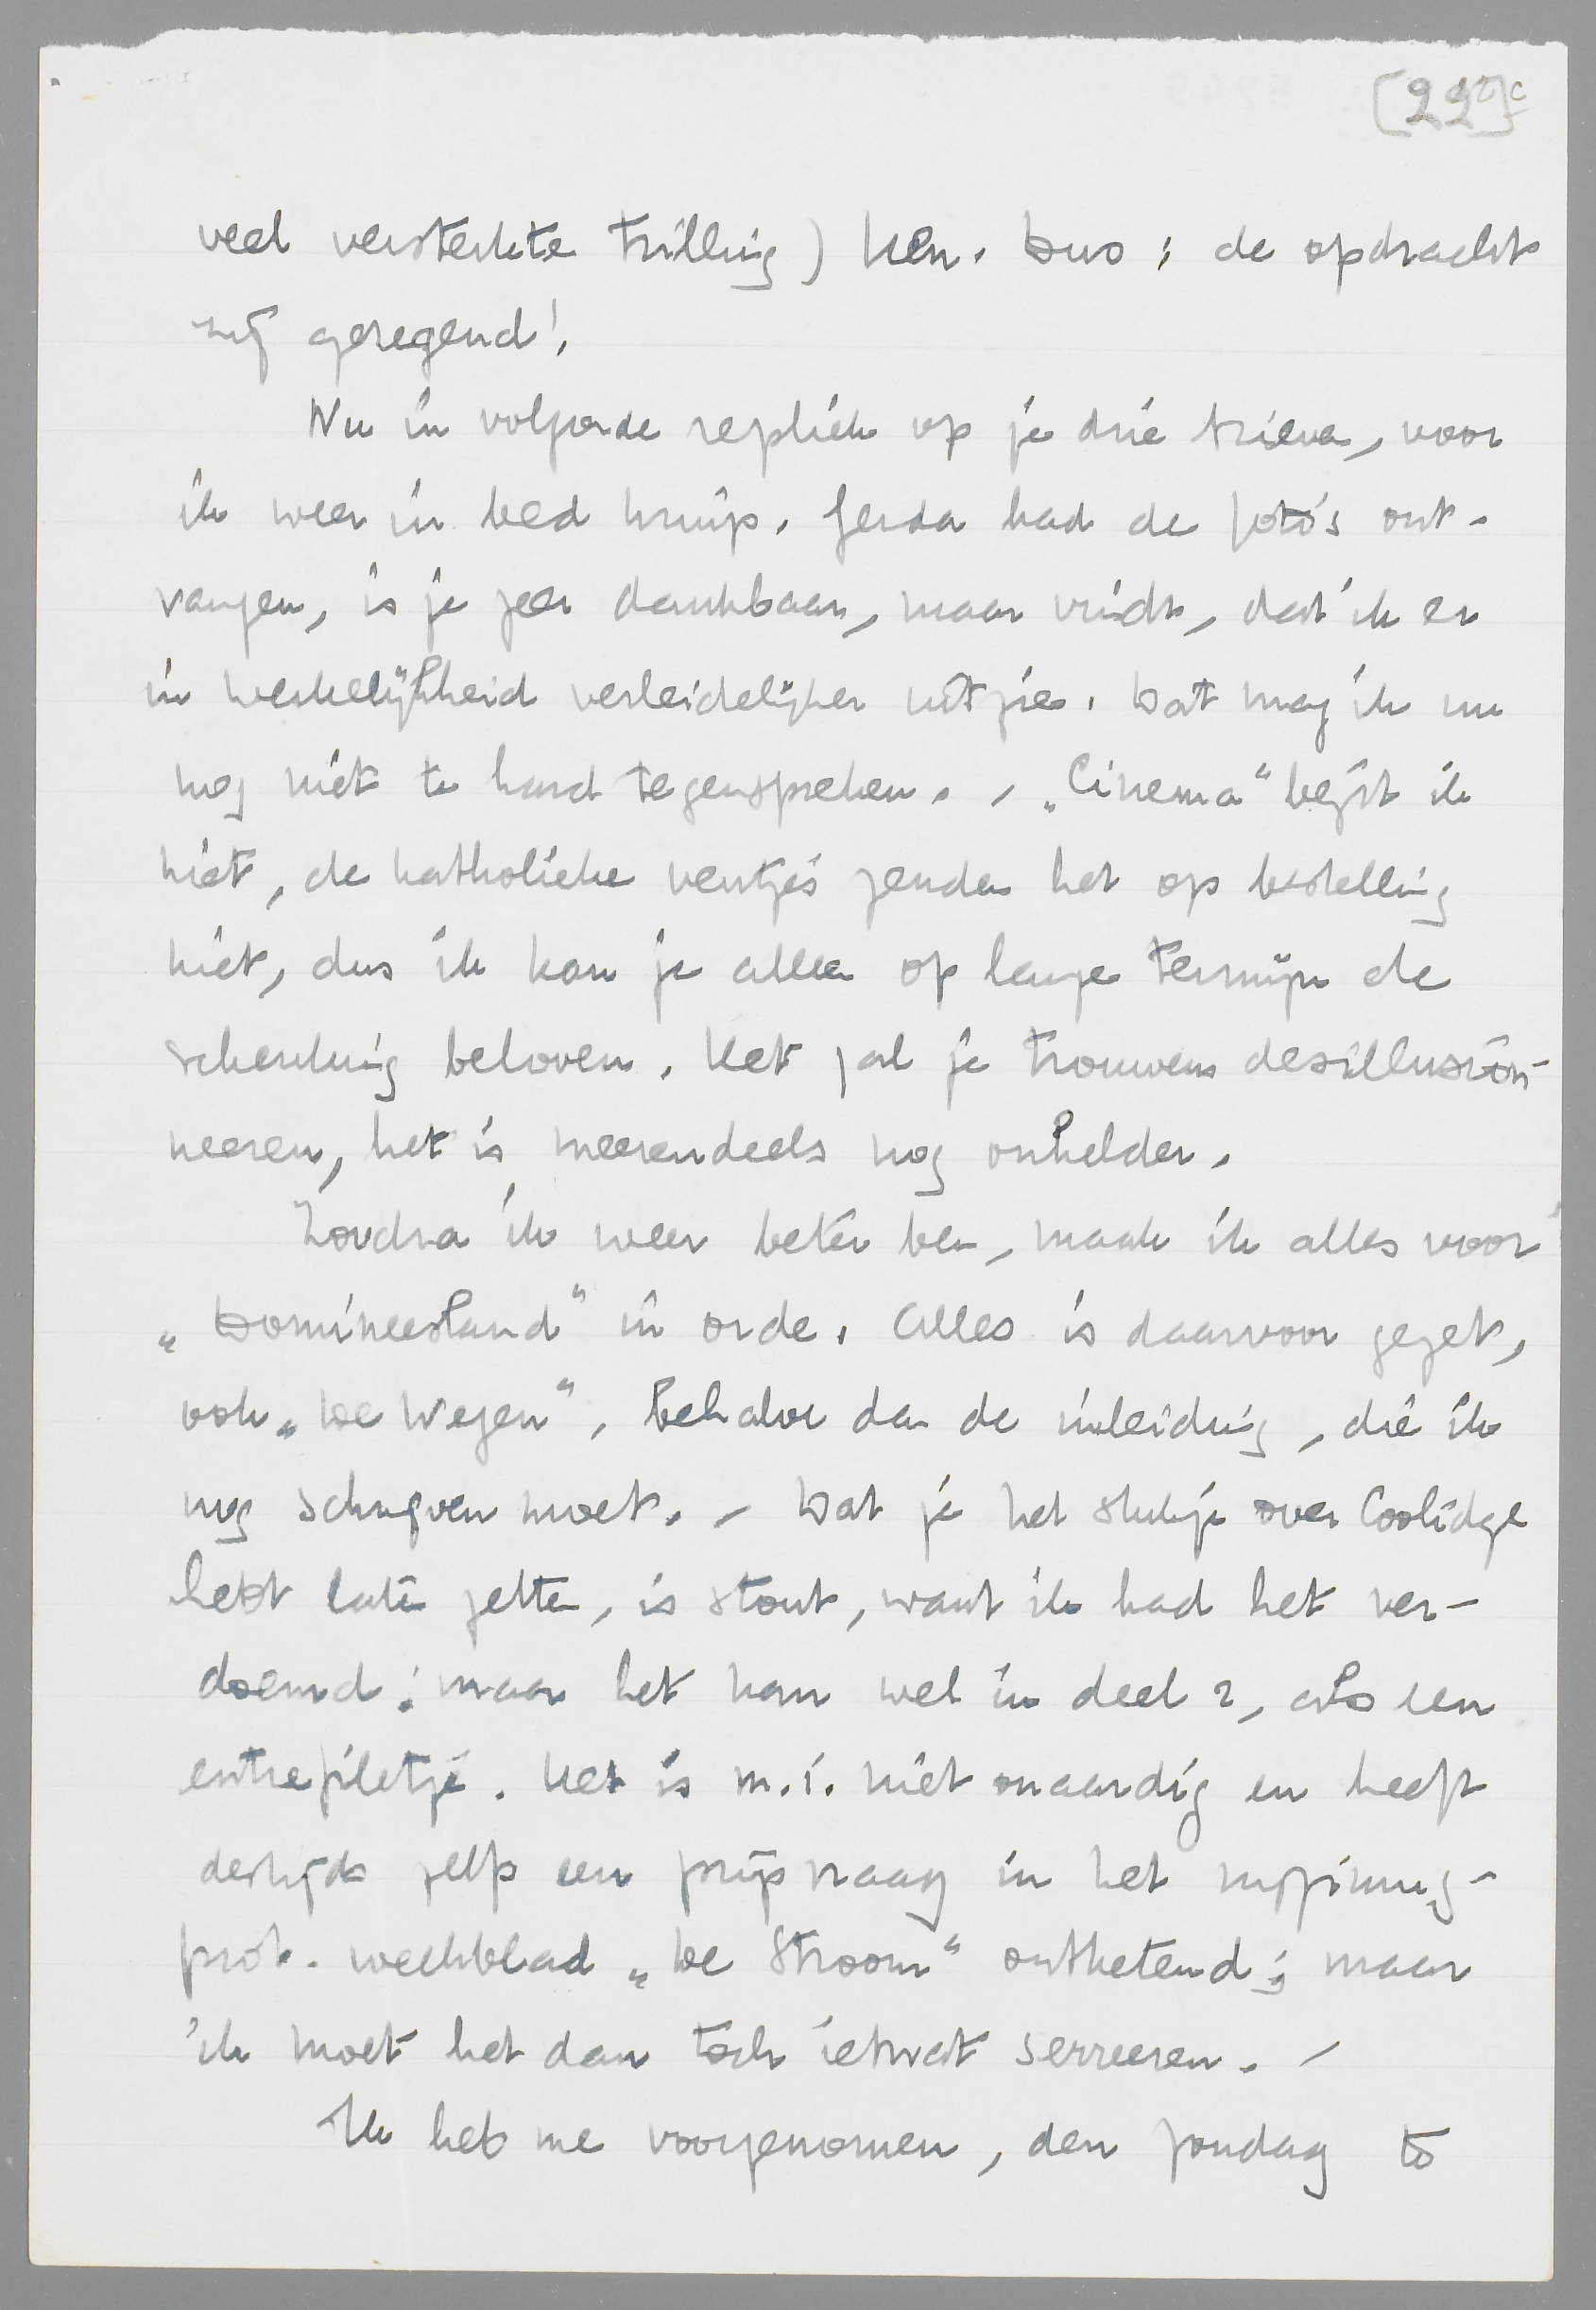 [229]c
veel versterkte trilling) ken. Dus: de opdracht
zij geregend!
Nu in volgorde repliek op je drie brieven, voor
ik weer in bed kruip. Gerda had de foto's ont-
vangen, is je zeer dankbaar, maar vindt, dat ik er
in werkelijkheid verleidelijker uitzie. Dat mag ik nu
nog niet te hard tegenspreken. - „Cinema" bezit ik
niet, de katholieke ventjes zenden het op bestelling
niet, dus ik kan je alleen op lange termijn de
schenking beloven. Het zal je trouwens desillusion-
neeren, het is meerendeels nog onhelder.
Zoodra ik weer beter ben, maak ik alles voor
„Domineesland" in orde. Alles is daarvoor gezet,
ook „De Wegen", behalve dan de inleiding, die ik
nog schrijven moet. - Dat je het stukje over Coolidge
hebt laten zetten, is stout, want ik had het ver-
doemd; maar het kan wel in deel 2, als een
entrefiletje. Het is m.i. niet onaardig en heeft
destijds zelfs een prijsvraag in het
prot. weekblad „De Stroom" ontketend; maar
ik moet het dan toch ietwat serreeren. -
Ik heb me voorgenomen, den zondag to